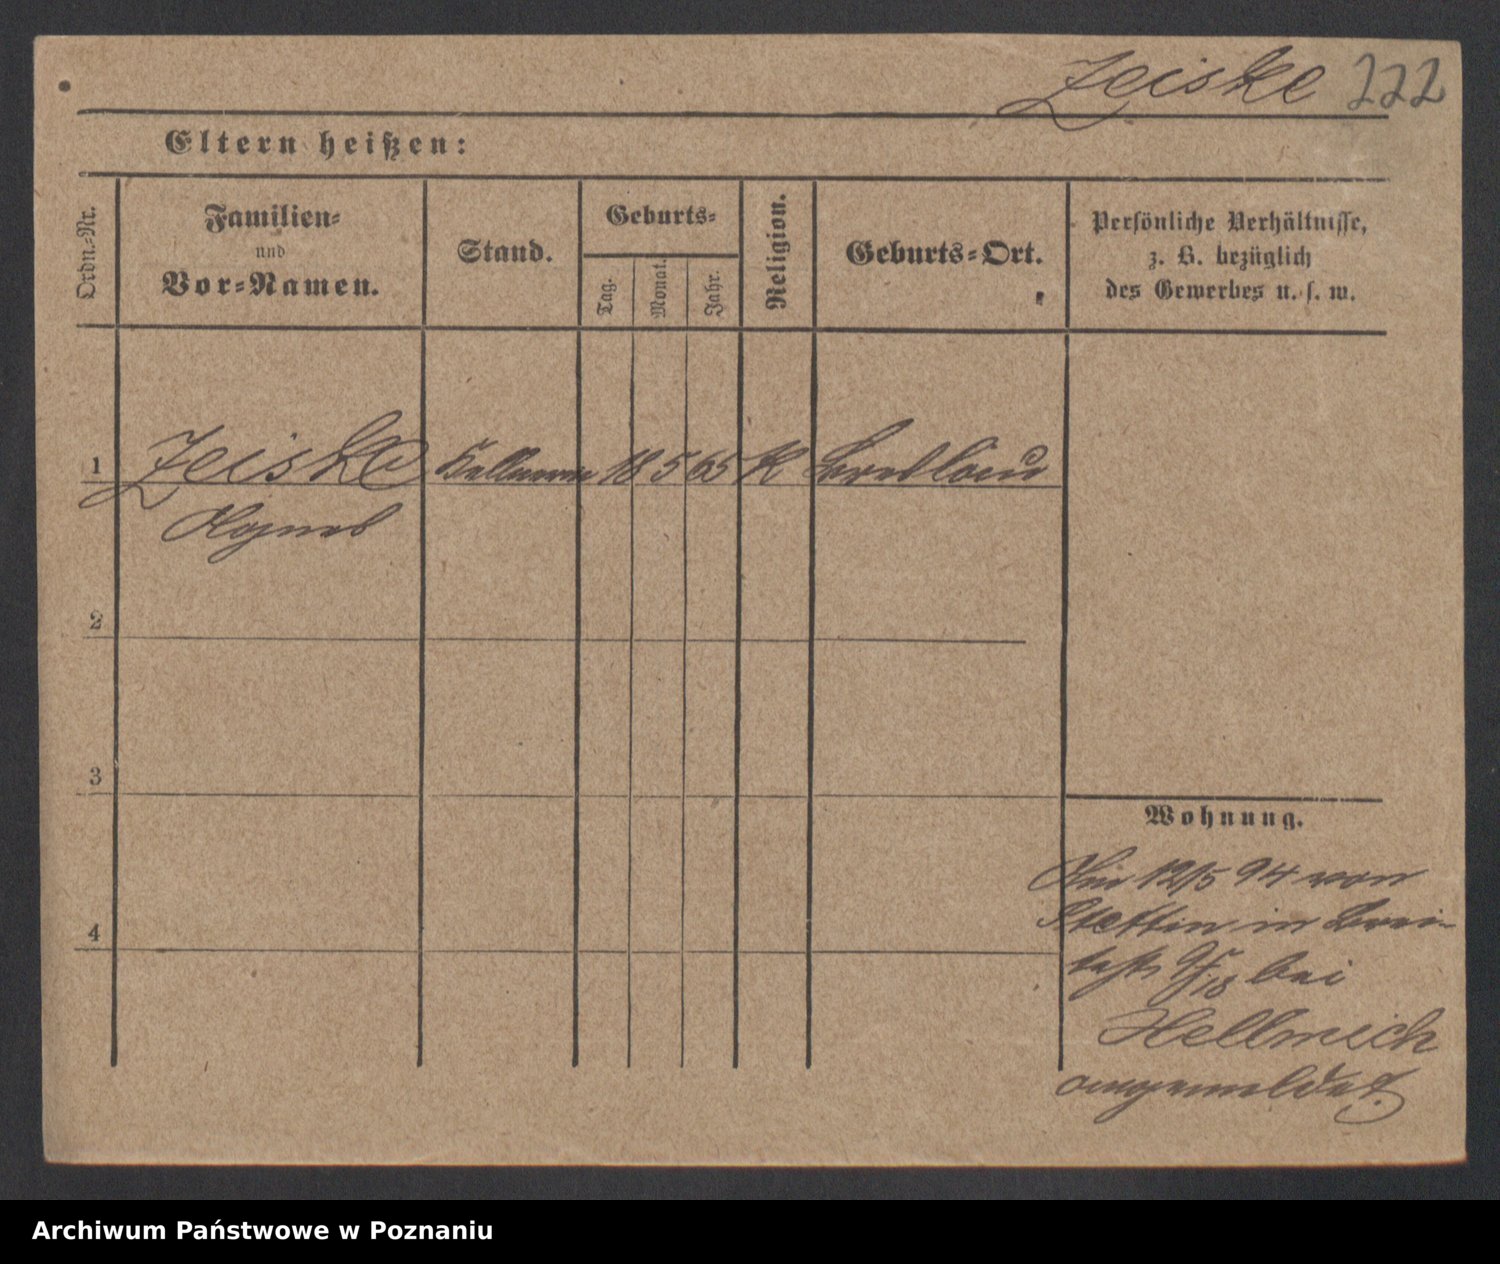 Zeiske 222
Eltern heißen:
Ordn.-Nr.
Familien-
und
Vor-Namen.
Stand.
Geburts-
Tag.
Monat.
Jahr.
Religion.
Geburts-Ort.
Persönliche Verhältnisse,
z. B. bezüglich
des Gewerbes u. s. w.
1 Zeiske Kellnerin 18 5 65 K Breslau
Agnes
2
3
4
Wohnung.
Am 12/5 94 von
Stettin in Brei-
testr 9/18 bei
Hellmich
angemeldet.
Archiwum Państwowe w Poznaniu